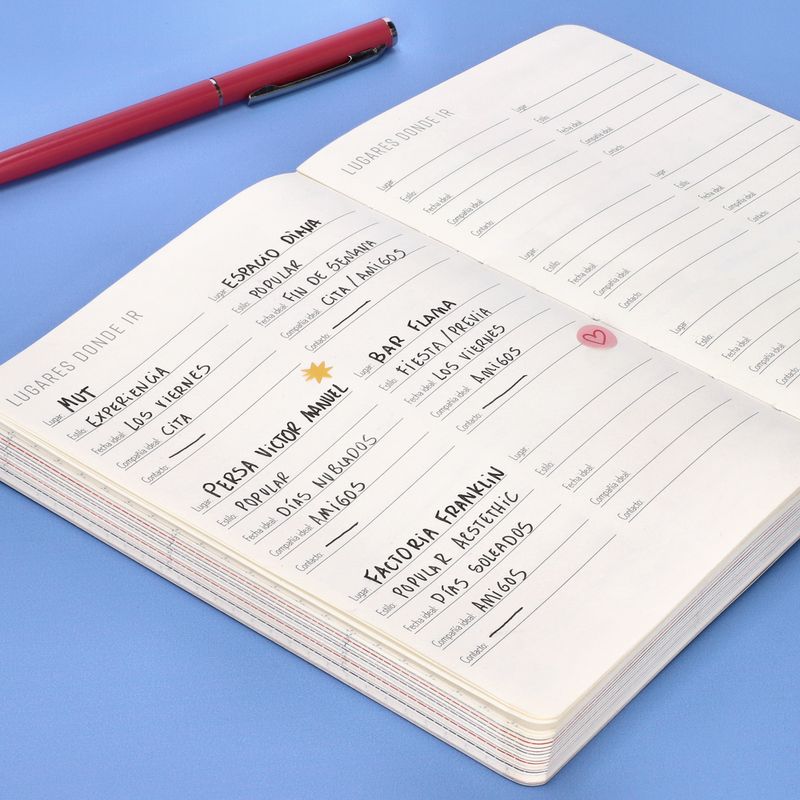 LUGARES DONDE IR
Lugar: MUT
Estilo: EXPERIENCIA
Fecha ideal: LOS VIERNES
Compañía ideal: CITA
Contacto: —
Lugar: ESPACIO DIANA
Estilo: POPULAR
Fecha ideal: FIN DE SEMANA
Compañía ideal: CITA/AMIGOS
Contacto: —
Lugar: PERSA VICTOR MANUEL
Estilo: POPULAR
Fecha ideal: DÍAS NUBLADOS
Compañía ideal: AMIGOS
Contacto: —
Lugar: BAR FLAMA
Estilo: FIESTA/PREVIA
Fecha ideal: LOS VIERNES
Compañía ideal: AMIGOS
Contacto: —
Lugar: FACTORIA FRANKLIN
Estilo: POPULAR AESTETHIC
Fecha ideal: DÍAS SOLEADOS
Compañía ideal: AMIGOS
Contacto: —
Lugar:
Estilo:
Fecha ideal:
Compañía ideal:
Contacto:
LUGARES DONDE IR
Lugar:
Estilo:
Fecha ideal:
Compañía ideal:
Contacto:
Lugar:
Estilo:
Fecha ideal:
Compañía ideal:
Contacto:
Lugar:
Estilo:
Fecha ideal:
Compañía ideal:
Contacto:
Lugar:
Estilo:
Fecha ideal:
Compañía ideal:
Contacto:
Lugar:
Estilo:
Fecha ideal:
Compañía ideal:
Contacto: